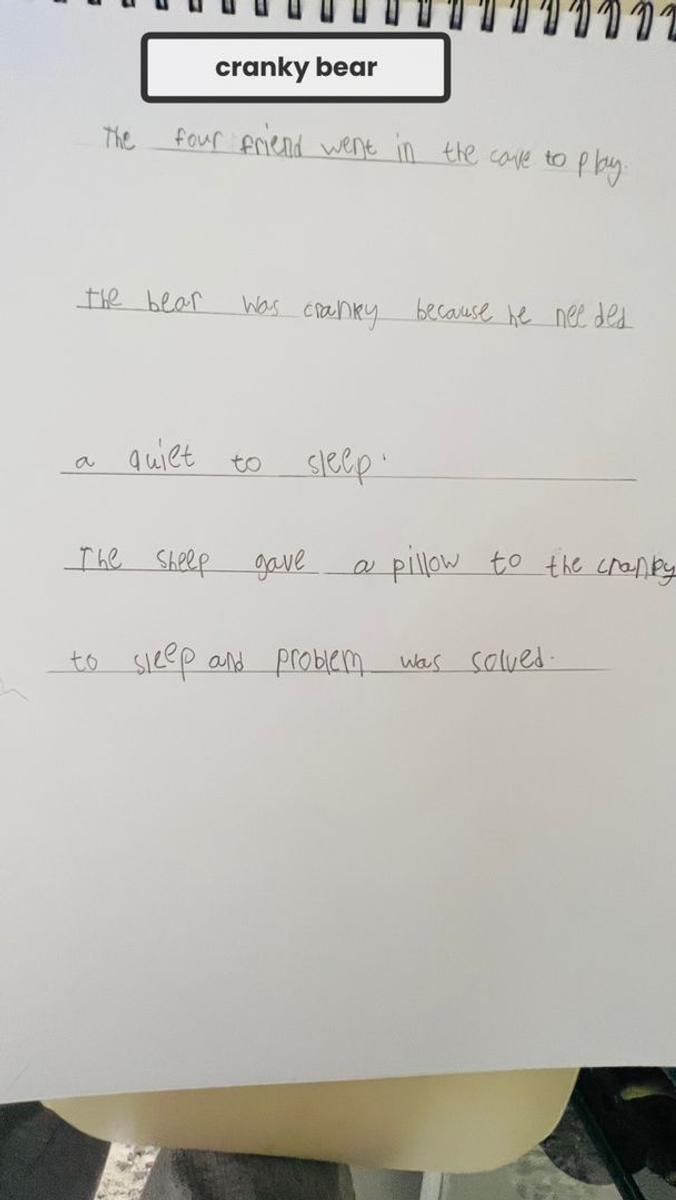 cranky bear
The four friend went in the cave to play.
The bear was cranky because he needed
a quiet to sleep.
The sheep gave a pillow to the cranky
to sleep and problem was solved.